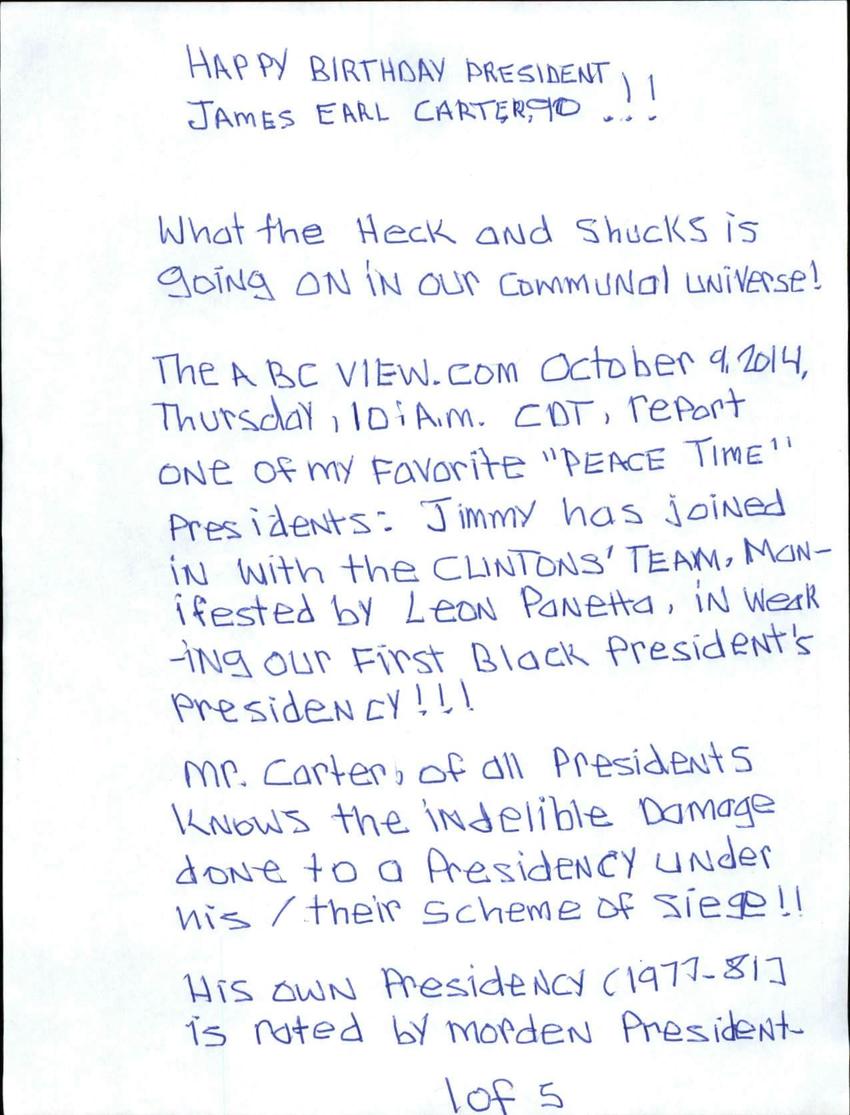 HAPPY BIRTHDAY PRESIDENT
JAMES EARL CARTER, 90 !!!
What the Heck and Shucks is
going on in our communal universe!
The ABC VIEW.com October 9, 2014,
Thursday, 10:A.m. CDT, report
one of my Favorite "PEACE TIME"
Presidents: Jimmy has joined
in with the CLINTONS' TEAM, Man-
ifested by Leon Panetta, in weak
-ing our First Black President's
Presidency!!!
Mr. Carter, of all Presidents
Knows the indelible Damage
done to a Presidency under
his / their scheme of siege!!
His own Presidency (1977-81]
is rated by morden President-
1 of 5